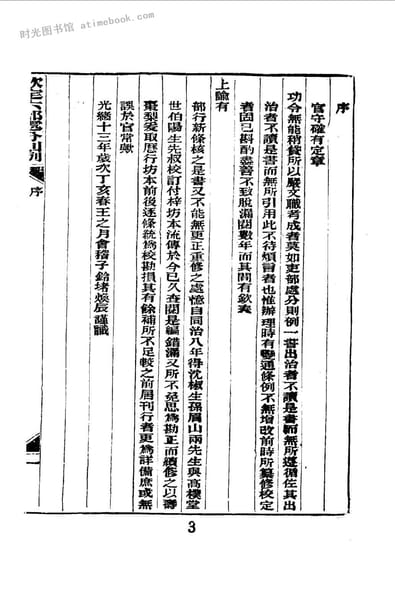 时光图书馆 - atimebook.com
序
官守確有定章
功令無能稍貸所以嚴文職考成者莫如吏部處分則例一書出治者不讀是書而無所遵循佐其出
治者不讀是書而無所引用此不待煩言者也惟辦理時有變通條例不無增改前時所纂修校定
者固已斟酌盡善不致脫漏閱數年而其間有欽奉
上諭有
部行新條核之是書又不能無更正重修之處憶自同治八年得沈椒生孫眉山兩先生與高樸堂
世伯陽生先叔校訂付梓坊本流傳於今已久查閱是編錯漏又所不免思為勘正而續修之以壽
棗梨爰取歷行坊本前後逐條統為校勘損其有餘補所不足較之前屆刊行者更為詳備庶或無
誤於官常歟
光緒十三年歲次丁亥春王之月會稽子齡堵煥辰謹識
序
一
3